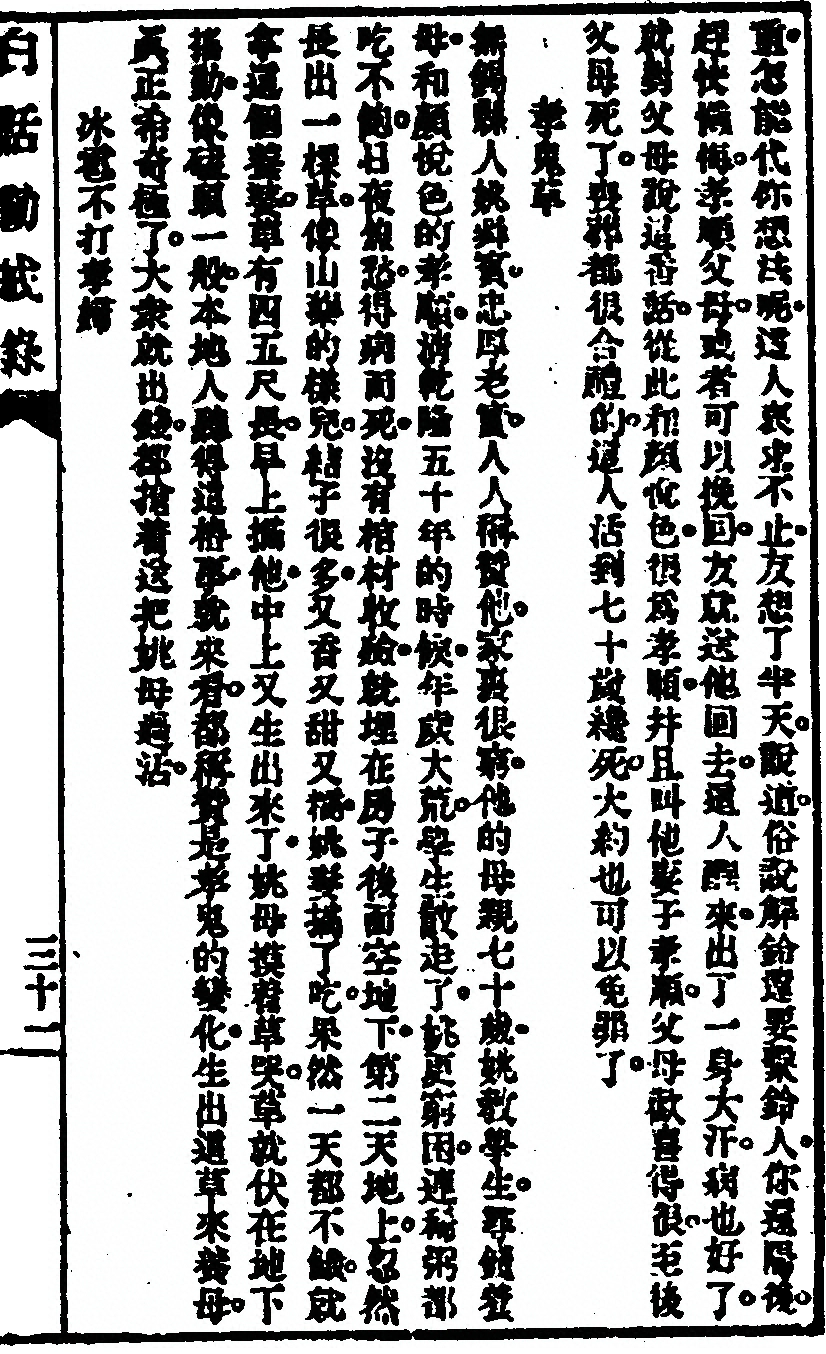 重怎能代你想法呢這人哀求不止友想了半天說道俗說解鈴還要繫鈴人你還陽後
趕快懺悔孝順父母或者可以挽回友就送他回去這人醒來出了一身大汗病也好了
就對父母說這番話從此和顏悅色很爲孝順并且叫他妻子孝順父母歡喜得很至後
父母死了喪葬都很合禮的這人活到七十歲纔死大約也可以免罪了
孝鬼草
無錫縣人姚舜賓忠厚老實人人稱贊他家裏很窮他的母親七十歲姚教學生尋錢養
母和顏悅色的孝順清乾隆五十年的時候年歲大荒學生散走了姚更窮困連稀粥都
吃不飽日夜愁得病而死沒有棺材收殮就埋在房子後面空地下第二天地上忽然
長出一棵草像山藥的樣兒結子很多又香又甜又糯姚妻摘了吃果然一天都不餓就
拿這個養婆草有四五尺長早上摘他中上又生出來了姚母摸着草哭草就伏在地下
搖動像磕頭一般本地人聽得這樁事就來看都稱贊是孝鬼的變化生出這草來養母
眞正希奇極了大衆就出錢都搶着送把姚母過活
冰雹不打孝婦
白話勸戒錄
三十一